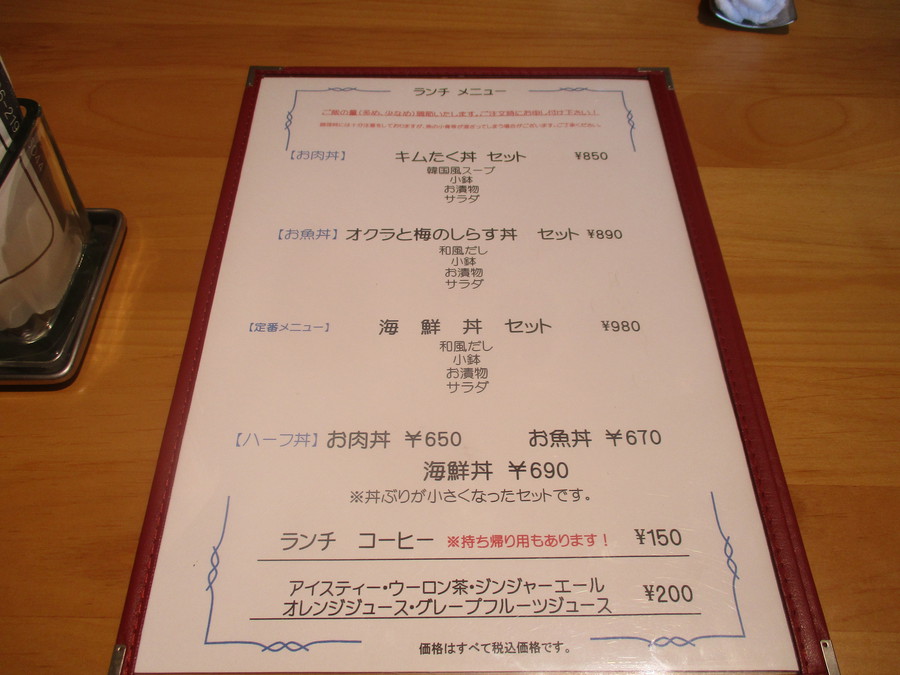 ランチ メニュー
ご飯の量(多め、少なめ)調節いたします。ご注文時にお申し付け下さい!
【お肉丼】 キムたく丼 セット ¥850
韓国風スープ
小鉢
お漬物
サラダ
【お魚丼】 オクラと梅のしらす丼 セット ¥890
和風だし
小鉢
お漬物
サラダ
【定番メニュー】 海 鮮 丼 セット ¥980
和風だし
小鉢
お漬物
サラダ
【ハーフ丼】 お肉丼 ¥650 お魚丼 ¥670
海鮮丼 ¥690
※丼ぶりが小さくなったセットです。
ランチ コーヒー ※持ち帰り用もあります! ¥150
アイスティー・ウーロン茶・ジンジャーエール ¥200
オレンジジュース・グレープフルーツジュース
価格はすべて税込価格です。
6-219